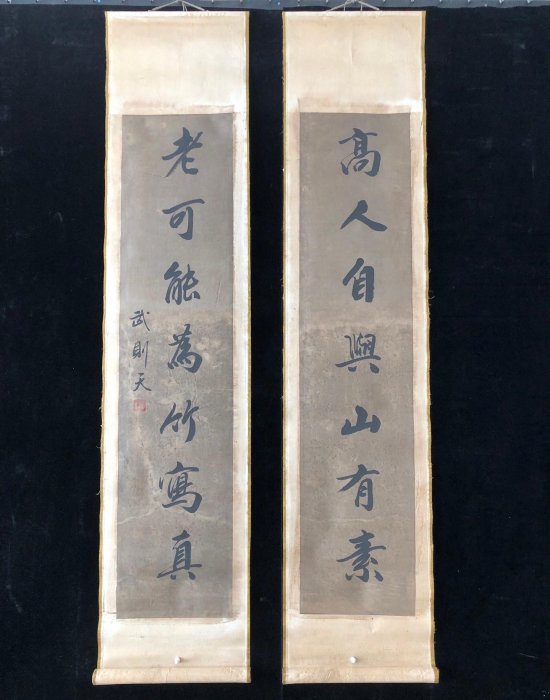 高人自與山有素
老可能為竹寫真
武則天